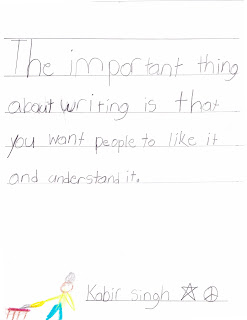 The important thing
about writing is that
you want people to like it
and understand it.
Kabir singh